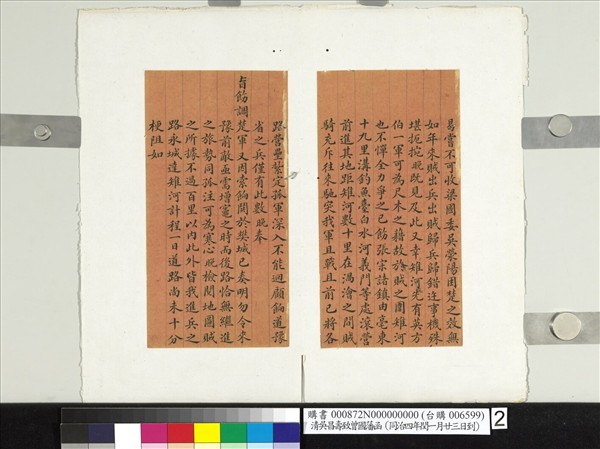 易嘗不可收樂國委吳蒙陽困楚之效無
如年來賊出兵出賊歸兵歸錯迕事機殊
堪扼捥晚既見及此又幸雉河先有英方
伯一軍可為尺木之藉故於賊之圍雉河
也不憚全力爭之已飭張宋諸鎮由亳東
十九里溝釣魚臺白水河義門等處滾營
前進其地距雉河數十里在渦澮之間賊
騎充斥往來馳突我軍且戰且前已將各
路營壘紮定孤軍深入不能迴顧餉道豫
省之兵僅有此數晚奉
旨飭調
楚軍又周索餉鬨於樊城已奏明勿令來
豫前敵亟需增竈之時而後路恰無繼進
之旅勢同孤注可為寒心晚檢閱地圖賊
之所據不過百里以內此外皆我進兵之
路永城達雉河計程一日道路尚未十分
梗阻如
購書 000872N000000000 (台購 006599)
清吳昌壽致曾國藩函(同治四年閏一月廿三日到)
2